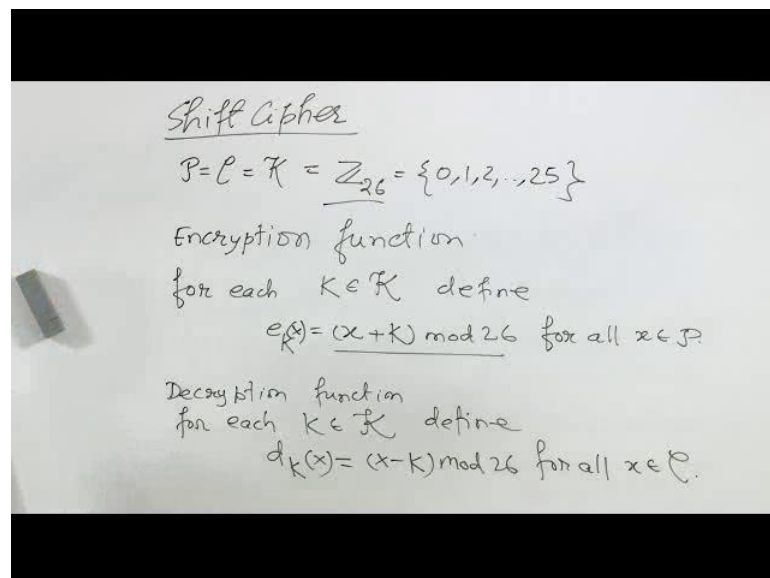 Shift Cipher
𝒫 = 𝒞 = 𝒦 = ℤ₂₆ = {0,1,2,..,25}
Encryption function
for each K ∈ 𝒦 define
eₖ(x) = (x+K) mod 26 for all x ∈ 𝒫.
Decryption function
for each K ∈ 𝒦 define
dₖ(x) = (x-K) mod 26 for all x ∈ 𝒞.